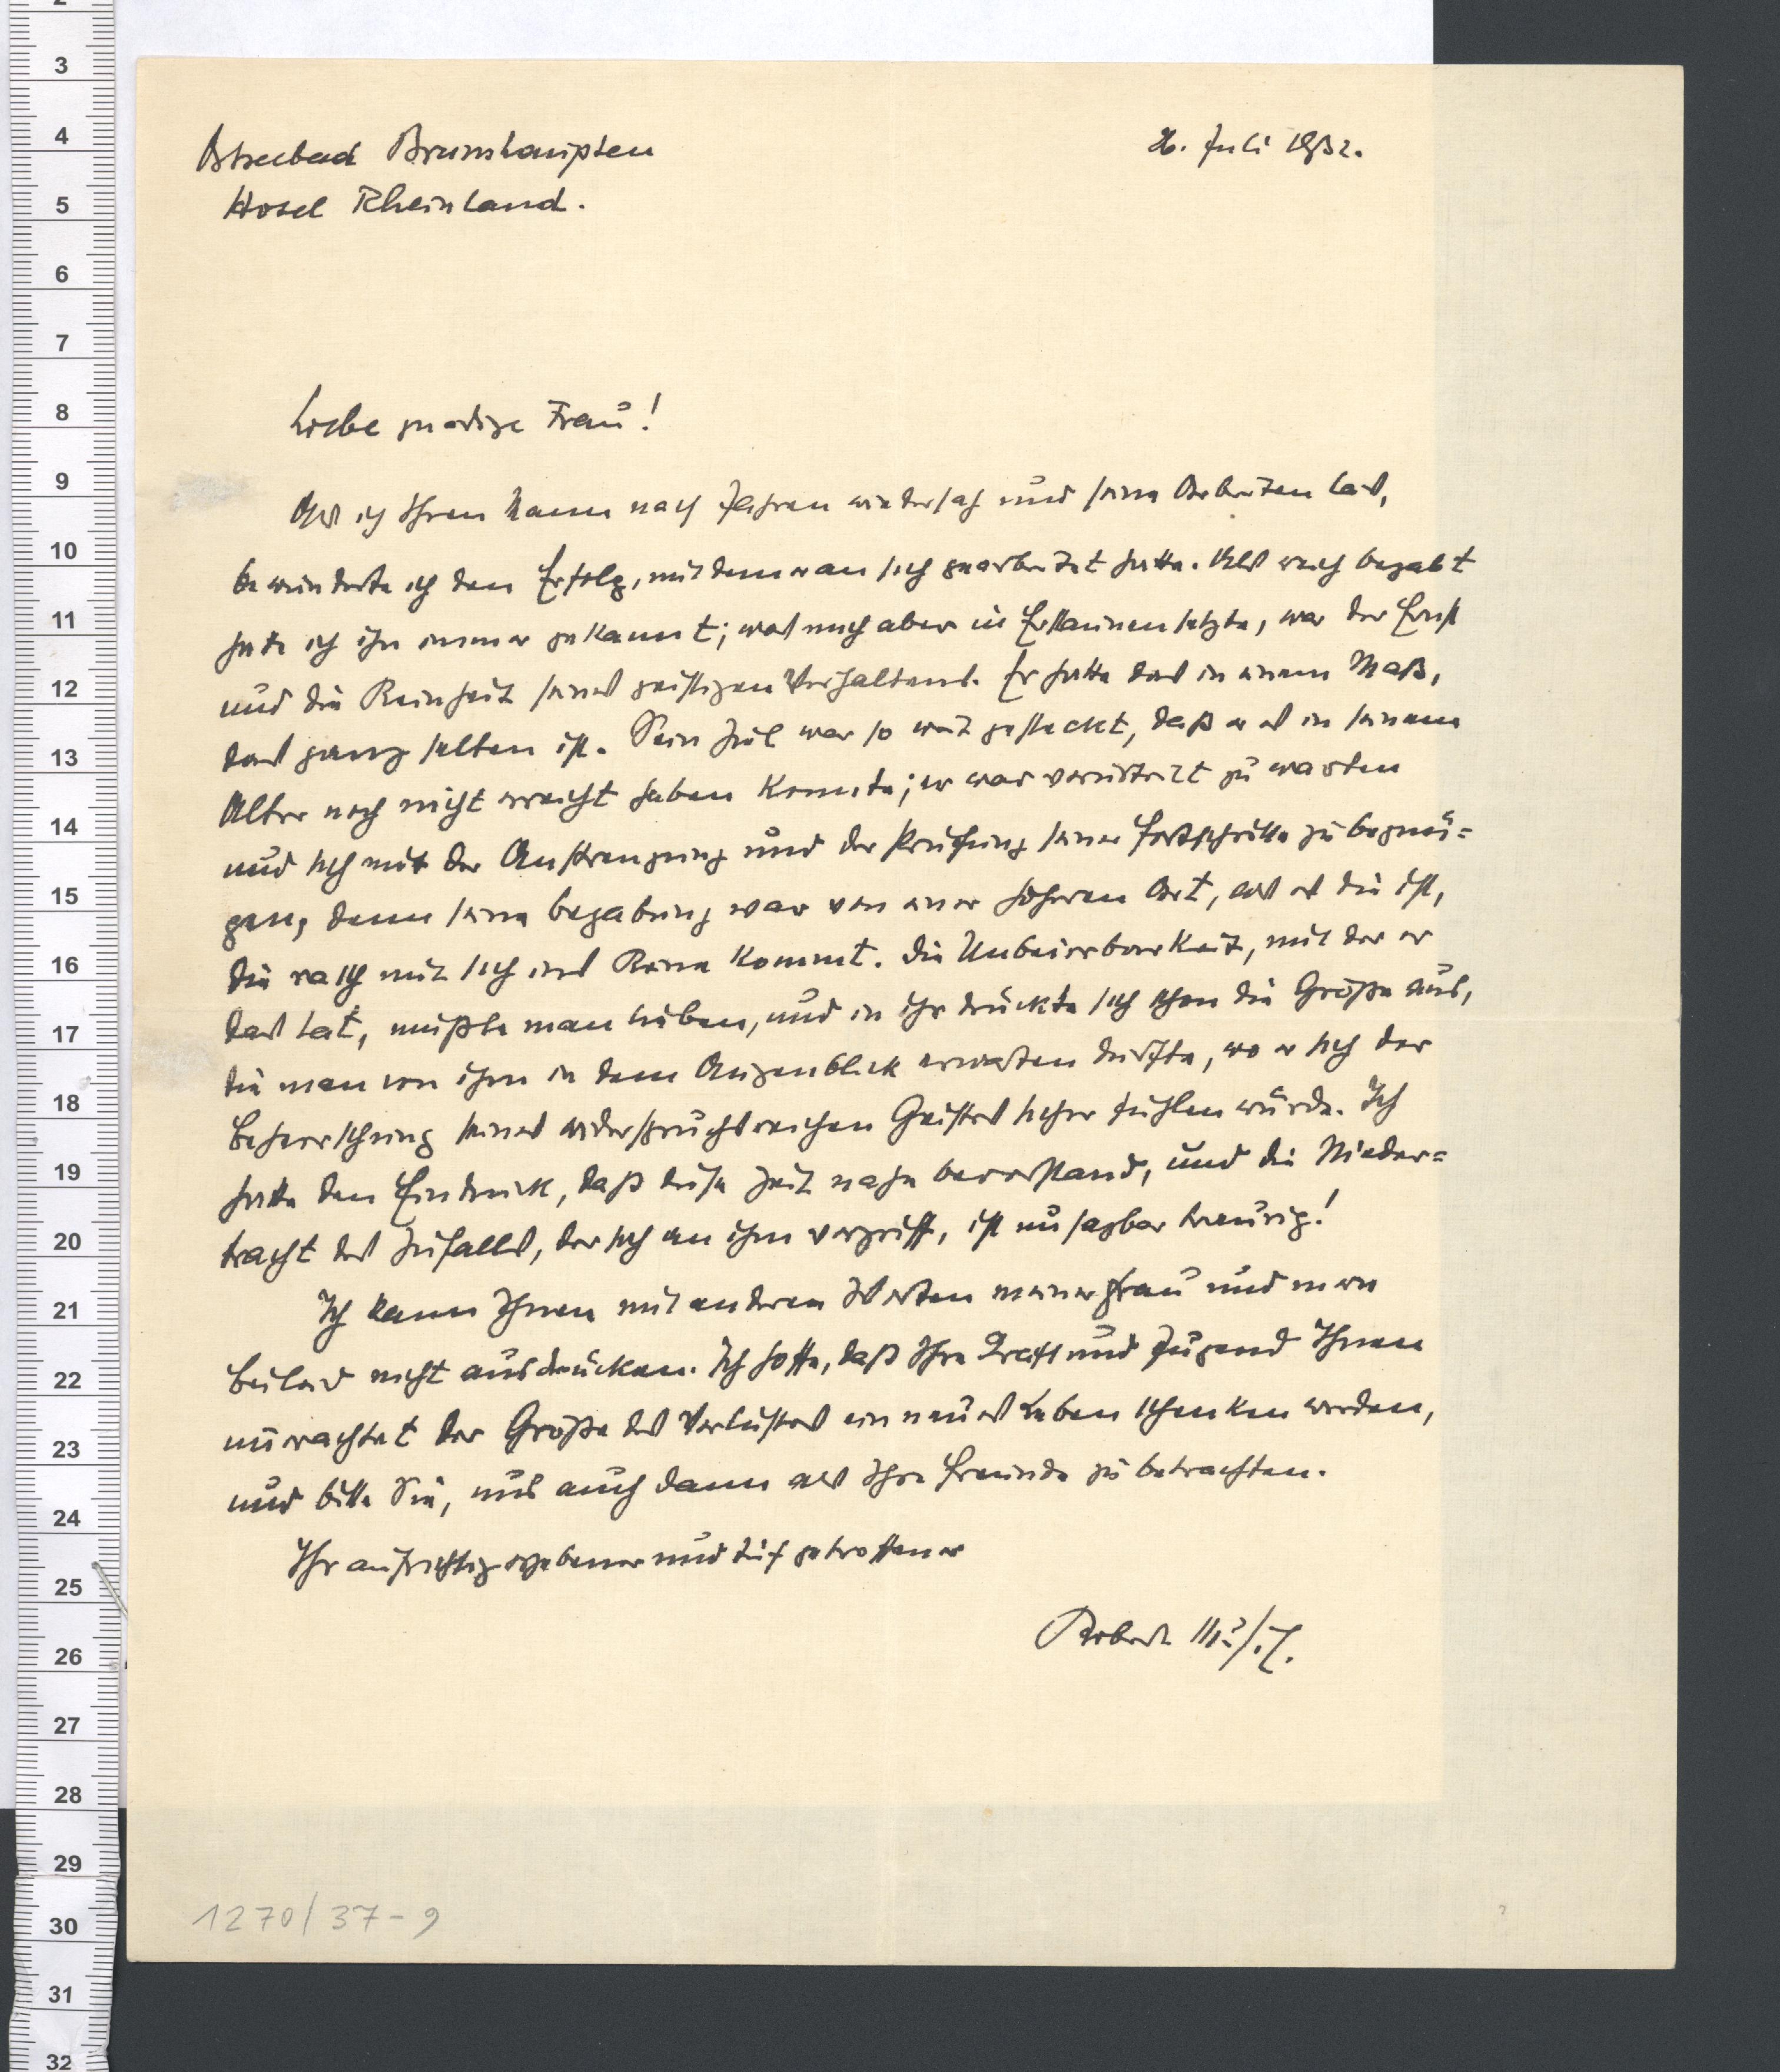 Ostseebad Brunshaupten
26. Juli 1932.
Hotel Rheinland.
Liebe gnädige Frau!
Als ich Ihren Mann nach Jahren wiedersah und seine Arbeiten las,
bewunderte ich den Erfolg, mit dem er an sich gearbeitet hatte. Als reich begabt
hatte ich ihn immer gekannt; was mich aber in Erstaunen setzte, war der Ernst
und die Reinheit seines geistigen Verhaltens. Er hatte das in einem Maß,
das ganz selten ist. Sein Ziel war so weit gesteckt, daß er es in seinem
Alter noch nicht erreicht haben konnte; er war verurteilt zu warten
und sich mit der Anstrengung und der Prüfung seiner Fortschritte zu begnü=
gen, denn seine Begabung war von einer höheren Art, als es die ist,
die rasch mit sich ins Reine kommt. Die Unbeirrbarkeit, mit der er
das tat, mußte man lieben, und in ihr drückte sich schon die Größe aus,
die man von ihm in dem Augenblick erwarten durfte, wo er sich der
Beherrschung seines widerspruchsreichen Geistes sicher fühlen würde. Ich
hatte den Eindruck, daß diese Zeit nahe bevorstand, und die Nieder=
tracht des Zufalls, der sich an ihm vergriff, ist unsagbar traurig!
Ich kann Ihnen mit anderen Worten meiner Frau und mein
Beileid nicht ausdrücken. Ich hoffe, daß Ihre Kraft und Jugend Ihnen
unerachtet der Größe des Verlustes ein neues Leben schenken werden,
und bitte Sie, uns auch dann als Ihre Freunde zu betrachten.
Ihr aufrichtig ergebener und tief getroffener
Robert Musil.
1270/37-9
3
4
5
6
7
8
9
10
11
12
13
14
15
16
17
18
19
20
21
22
23
24
25
26
27
28
29
30
31
32